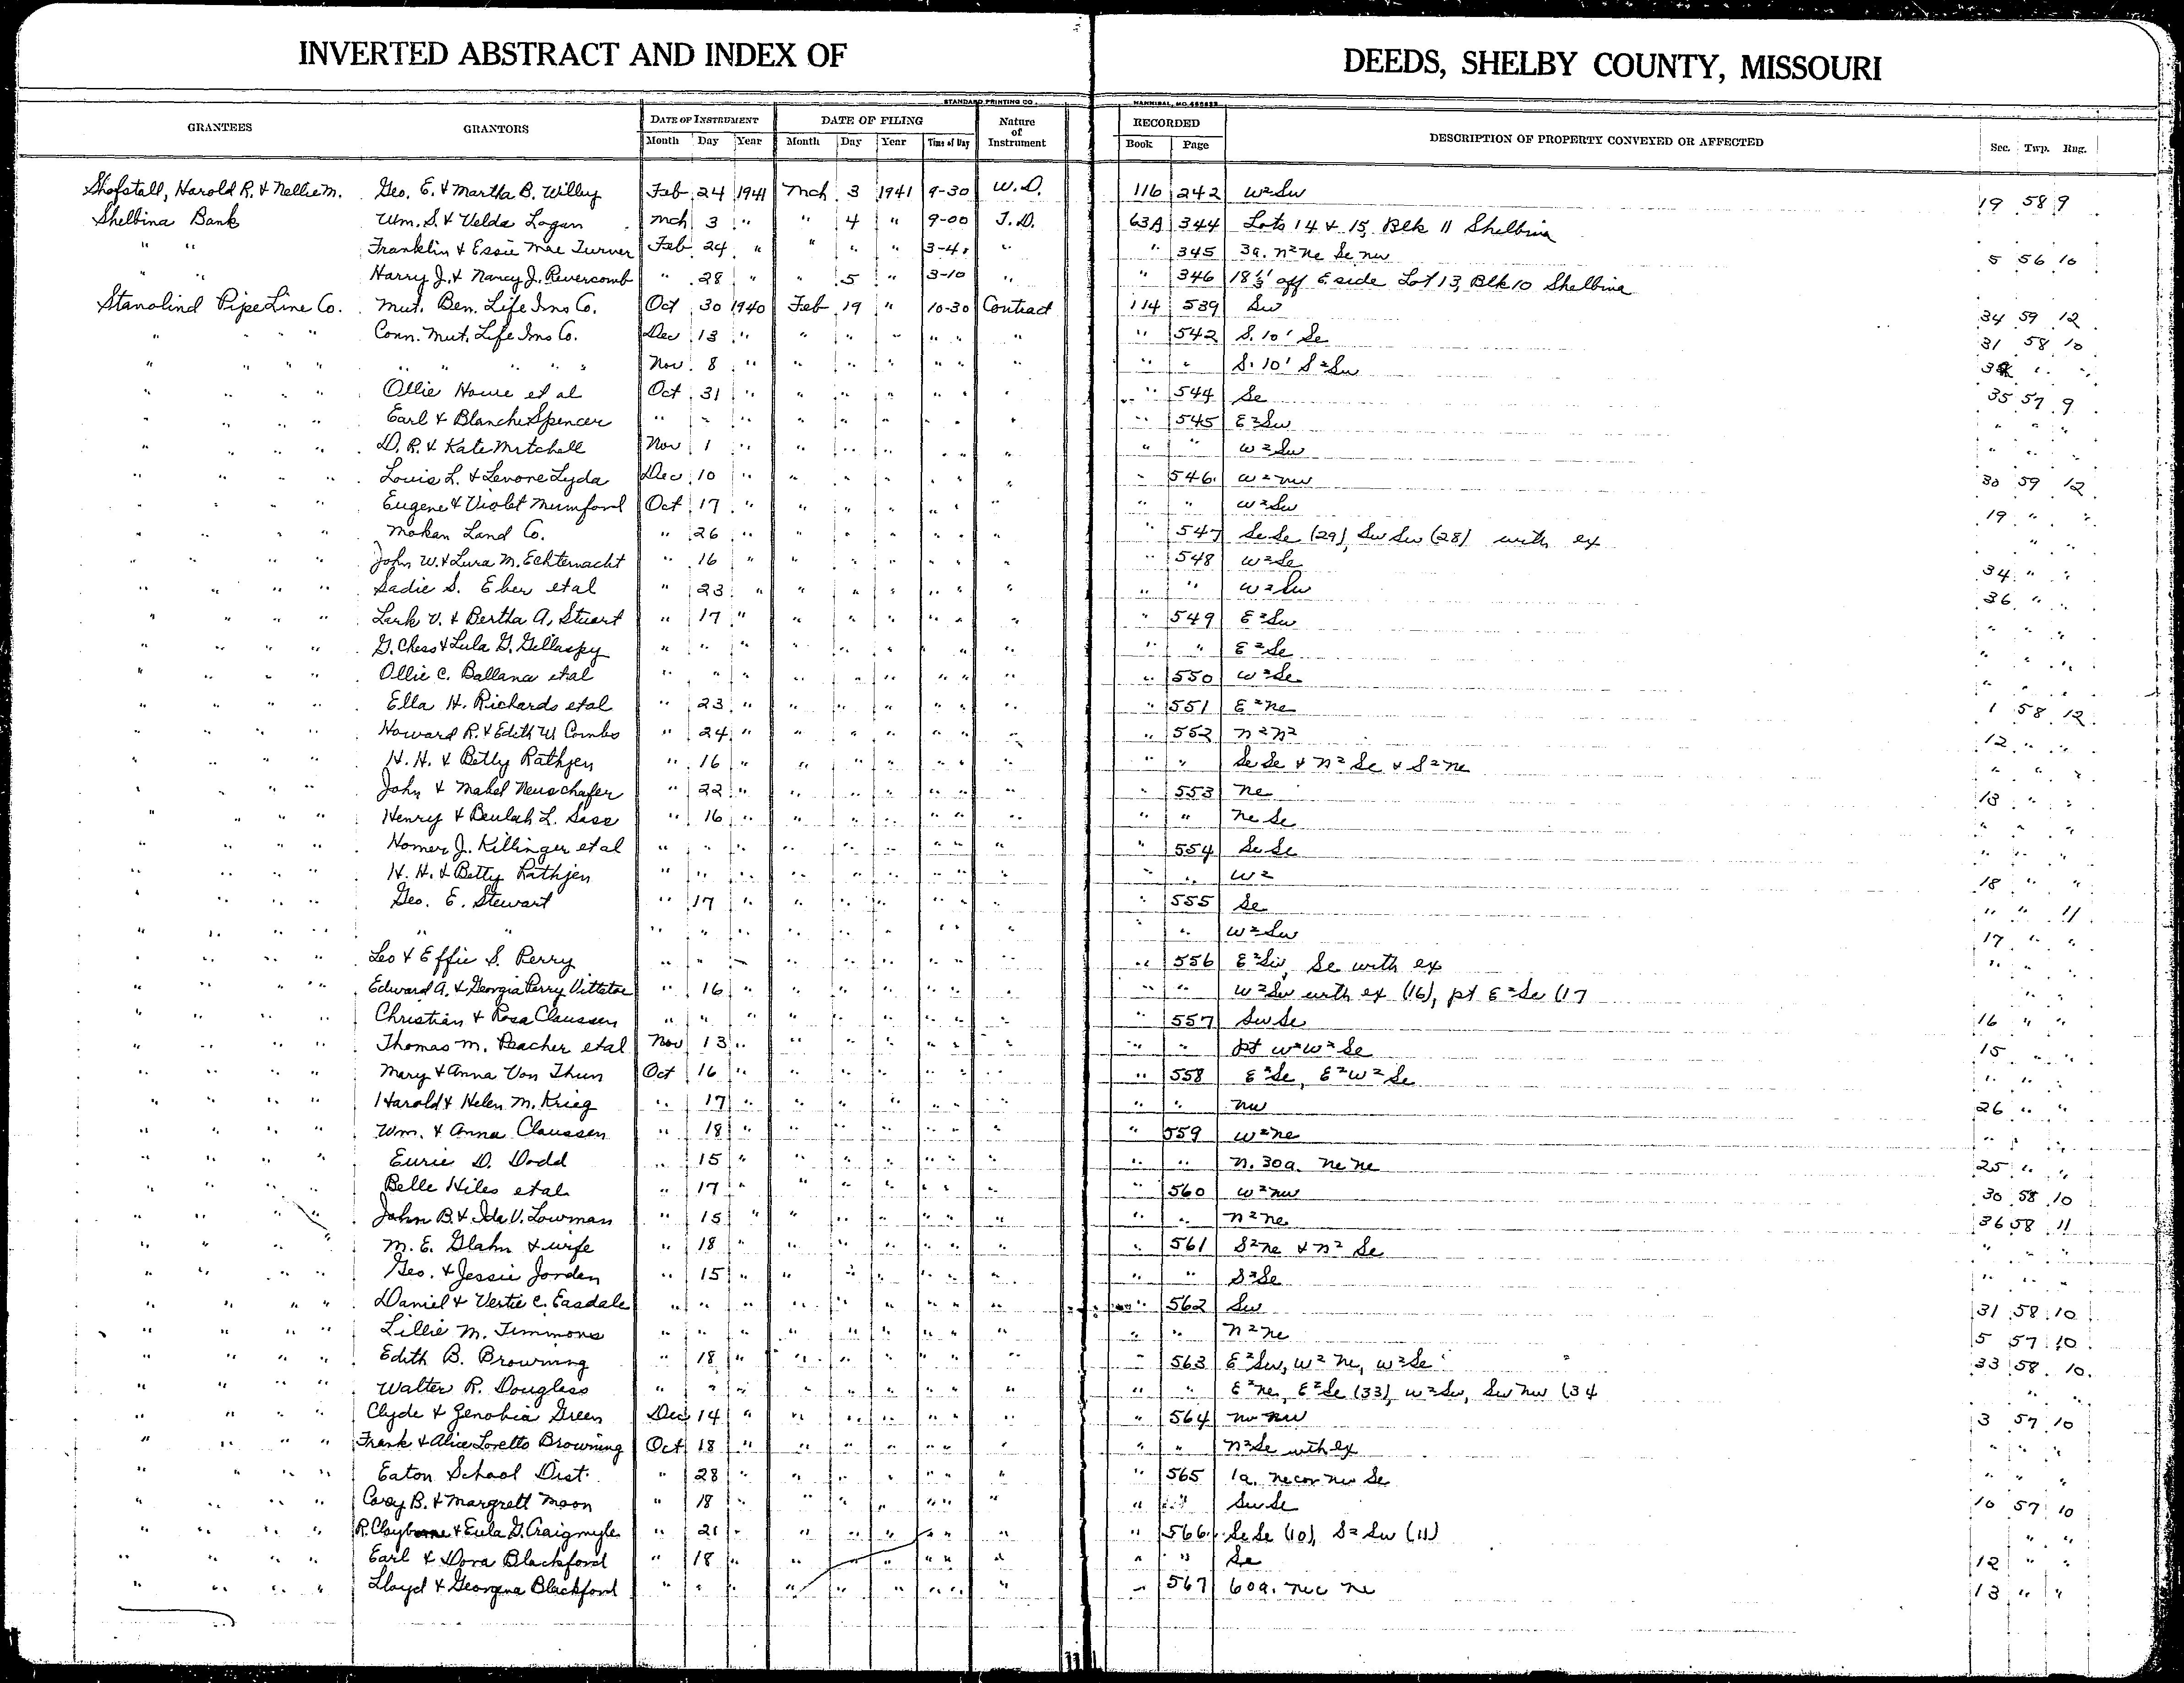 INVERTED ABSTRACT AND INDEX OF DEEDS, SHELBY COUNTY, MISSOURI
STANDARD PRINTING CO. HANNIBAL, MO.
GRANTEES GRANTORS DATE OF INSTRUMENT DATE OF FILING Nature of Instrument RECORDED DESCRIPTION OF PROPERTY CONVEYED OR AFFECTED Sec. Twp. Rng.
Month Day Year Month Day Year Time of Day Book Page
Shofstall, Harold R. & Nellie M. Geo. E. & Martha B. Willey Feb 24 1941 Mch 3 1941 9-30 W.D. 116 242 W2Sw 19 58 9
Shelbina Bank Wm. S. & Velda Logan Mch 3 " " 4 " 9-00 T.D. 63A 344 Lots 14 & 15, Blk 11 Shelbina
" " Franklin & Essie Mae Turner Feb 24 " " " " 3-4 " " 345 3a. N2Ne Se Nw 5 56 10
" " Harry J. & Nancy J. Revercomb " 28 " " 5 " 3-10 " " 346 18½' off E side Lot 13, Blk 10 Shelbina
Stanolind Pipe Line Co. Mut. Ben. Life Ins Co. Oct 30 1940 Feb 19 " 10-30 Contract 114 539 Sw 34 59 12
" " " Conn. Mut. Life Ins Co. Dec 13 " " " " " " " " 542 S. 10' Se 31 58 10
" " " " " " " " Nov 8 " " " " " " " " " S. 10' S2Sw " "
" " " " Ollie Howe et al Oct 31 " " " " " " " " 544 Se 35 57 9
" " " " Earl & Blanche Spencer " " " " " " " " " " 545 E2Sw " " "
" " " " D. R. & Kate Mitchell Nov 1 " " " " " " " " " W2Sw " " "
" " " " Louis L. & Levone Lyda Dec 10 " " " " " " " " 546 W2Nw 30 59 12
" " " " Eugene & Violet Mumford Oct 17 " " " " " " " " " W2Sw 19 " "
" " " " Mokan Land Co. " 26 " " " " " " " " 547 SeSe (29), SwSw (28) with ex " " "
" " " " John W. & Lura M. Echternacht " 16 " " " " " " " " 548 W2Se 34 " "
" " " " Sadie S. Eber et al " 23 " " " " " " " " " W2Sw 36 " "
" " " " Lark V. & Bertha A. Stuart " 17 " " " " " " " " 549 E2Sw " " "
" " " " G. Chess & Lula G. Gillaspy " " " " " " " " " " " E2Se " " "
" " " " Ollie C. Ballance et al " " " " " " " " " " 550 W2Se " " "
" " " " Ella H. Richards et al " 23 " " " " " " " " 551 E2Ne 1 58 12
" " " " Howard R. & Edith W. Combs " 24 " " " " " " " " 552 N2N2 12 " "
" " " " H. H. & Betty Rathjen " 16 " " " " " " " " " SeSe & N2Se & S2Ne " " "
" " " " John & Mabel Neuschafer " 22 " " " " " " " " 553 Ne 13 " "
" " " " Henry & Beulah L. Sass " 16 " " " " " " " " " NeSe " " "
" " " " Homer J. Killinger et al " " " " " " " " " " 554 SeSe " " "
" " " " H. H. & Betty Rathjen " " " " " " " " " " " W2 18 " "
" " " " Geo. E. Stewart " 17 " " " " " " " " 555 Se " " 11
" " " " " " " " " " " " " " " " " W2Sw 17 " "
" " " " Leo & Effie S. Perry " " " " " " " " " " 556 E2Sw, Se with ex " " "
" " " " Edward A. & Georgia Perry Vittetoe " 16 " " " " " " " " " W2Sw with ex (16), pt E2Se (17 " " "
" " " " Christian & Rosa Claussen " " " " " " " " " " 557 SwSe 16 " "
" " " " Thomas M. Peacher et al Nov 13 " " " " " " " " " pt W2W2Se 15 " "
" " " " Mary & Anna Von Thun Oct 16 " " " " " " " " 558 E2Se, E2W2Se " " "
" " " " Harold & Helen M. Krieg " 17 " " " " " " " " " Nw 26 " "
" " " " Wm. & Anna Claussen " 18 " " " " " " " " 559 W2Ne " " "
" " " " Eurie D. Dodd " 15 " " " " " " " " " N. 30a. NeNe 25 " "
" " " " Belle Hiles et al " 17 " " " " " " " " 560 W2Nw 30 58 10
" " " " John B. & Ida V. Lowman " 15 " " " " " " " " " N2Ne 36 58 11
" " " " M. E. Glahn & wife " 18 " " " " " " " " 561 S2Ne & N2Se " " "
" " " " Geo. & Jessie Jorden " 15 " " " " " " " " " S2Se " " "
" " " " Daniel & Vertie C. Easdale " " " " " " " " " " 562 Sw 31 58 10
" " " " Lillie M. Timmons " " " " " " " " " " " N2Ne 5 57 10
" " " " Edith B. Browning " 18 " " " " " " " " 563 E2Sw, W2Ne, W2Se 33 58 10
" " " " Walter R. Douglass " " " " " " " " " " " E2Ne, E2Se (33), W2Sw, SwNw (34 " " "
" " " " Clyde & Zenobia Green Dec 14 " " " " " " " " 564 Nw Nw 3 57 10
" " " " Frank & Alice Loretto Browning Oct 18 " " " " " " " " " N2Se with ex " " "
" " " " Eaton School Dist. " 28 " " " " " " " " 565 1a. Ne cor Nw Se " " "
" " " " Casy B. & Margrett Moon " 18 " " " " " " " " " SwSe 10 57 10
" " " " R. Clayborne & Eula G. Craigmyle " 21 " " " " " " " " 566 SeSe (10), S2Sw (11) " "
" " " " Earl & Dora Blackford " 18 " " " " " " " " " Se 12 " "
" " " " Lloyd & Georgena Blackford " " " " " " " " " " 567 60a. Ne 13 " "